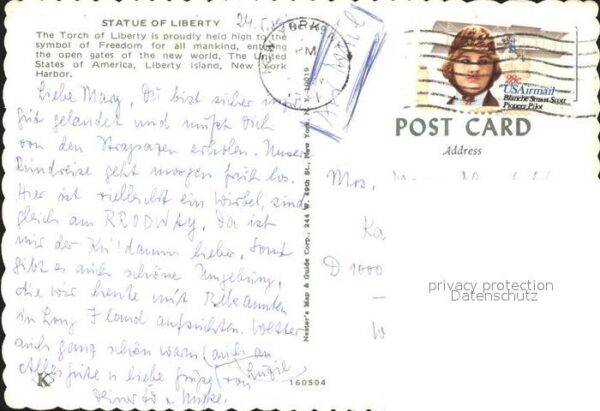 STATUE OF LIBERTY
24.5.
The Torch of Liberty is proudly held high to the
symbol of Freedom for all mankind, entering
the open gates of the new world, The United
States of America, Liberty Island, New York
Harbor.
YORK
PM
N.Y. 10019
Air Mail
28c
USAirmail
Blanche Stuart Scott
Pioneer Pilot
POST CARD
Address
Liebe Mary, Du bist sicher
gut gelandet und mußt Dich
von den Strapazen erholen. Unsere
Rundreise geht morgen früh los.
Hier ist vielleicht ein Wirbel, sind
gleich am BRODWAY, da ist
mir der Ku'damm lieber, sonst
gibt es auch schöne Umgebung,
die wir heute mit Bekannten
in Long Island aufsuchten. Wetter
auch ganz schön warm
Alles gute u liebe Grüße von
(auch an
Deine
Mrs.
Ka
D 1000
W
Nester's Map & Guide Corp., 244 W. 49th St., New York, N.Y. 10019
160504
K
privacy protection
Datenschutz